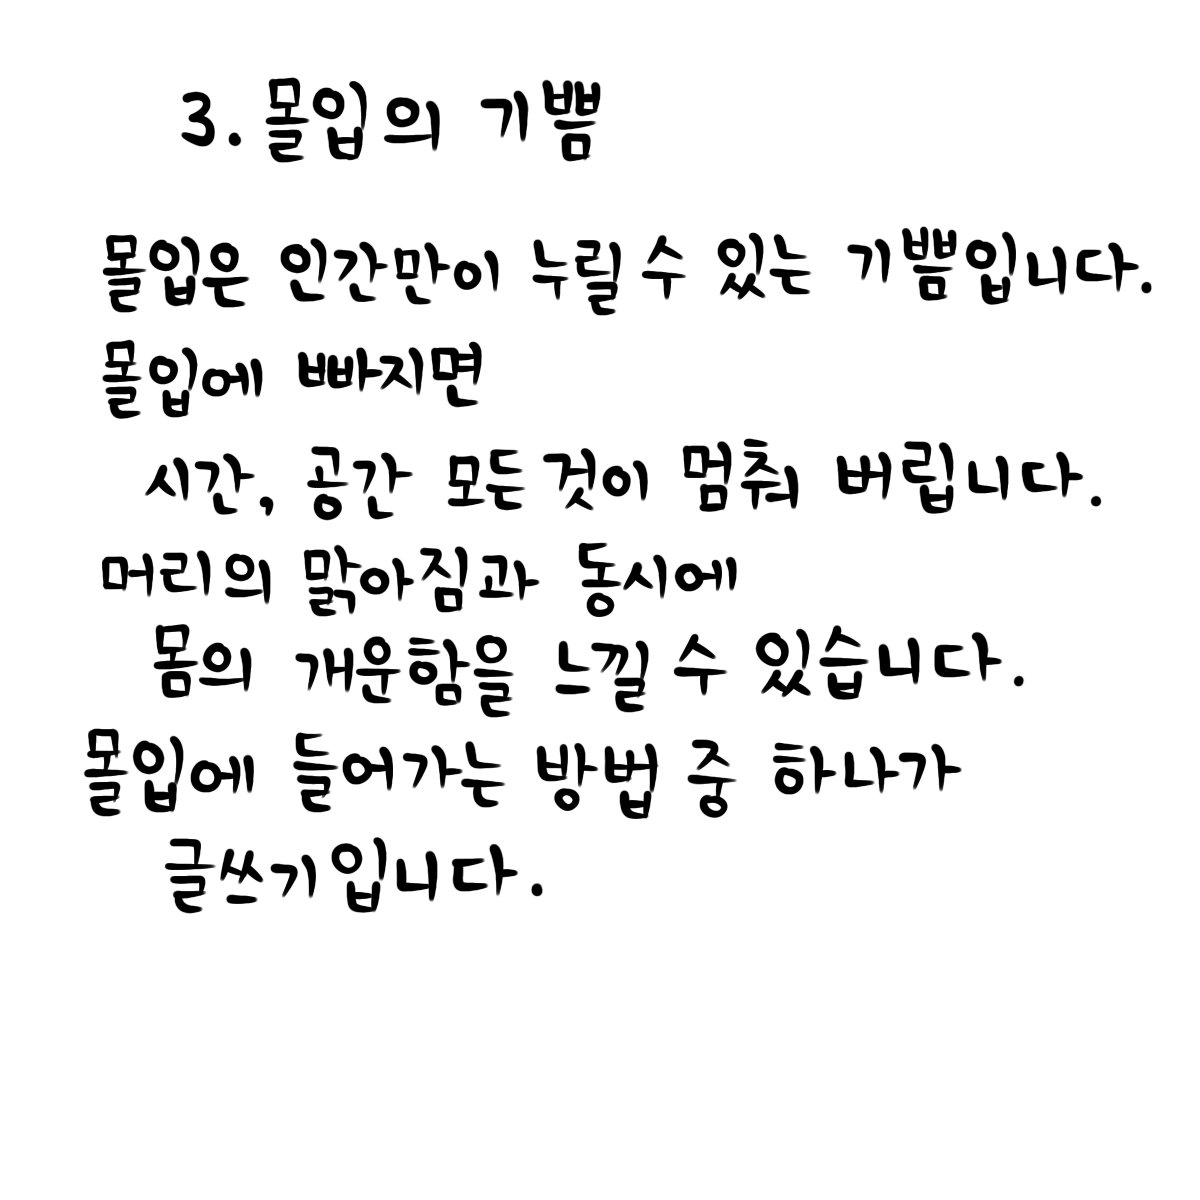 3. 몰입의 기쁨
몰입은 인간만이 누릴 수 있는 기쁨입니다.
몰입에 빠지면
시간, 공간 모든 것이 멈춰 버립니다.
머리의 맑아짐과 동시에
몸의 개운함을 느낄 수 있습니다.
몰입에 들어가는 방법 중 하나가
글쓰기입니다.